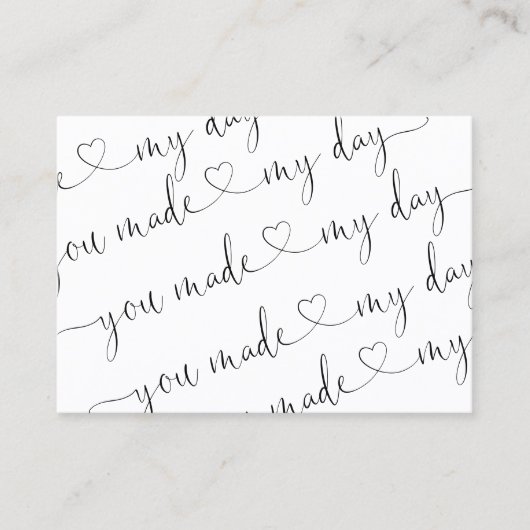 e my day
you made my day
you made my day
you made my day
made my